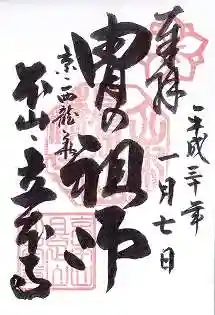 奉拝
平成三十年
一月七日
冑の祖師
京・西龍華
本山・立本寺